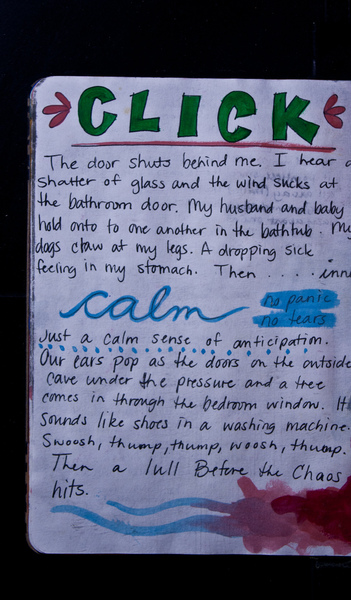 CLICK
The door shuts behind me. I hear a
shatter of glass and the wind sucks at
the bathroom door. My husband and baby
hold onto to one another in the bathtub. My
dogs claw at my legs. A dropping sick
feeling in my stomach. Then . . . . inn
calm
no panic
no tears
Just a calm sense of anticipation.
Our ears pop as the doors on the outside
cave under the pressure and a tree
comes in through the bedroom window. It
sounds like shoes in a washing machine.
Swoosh, thump, thump, woosh, thump.
Then a lull Before the Chaos
hits.